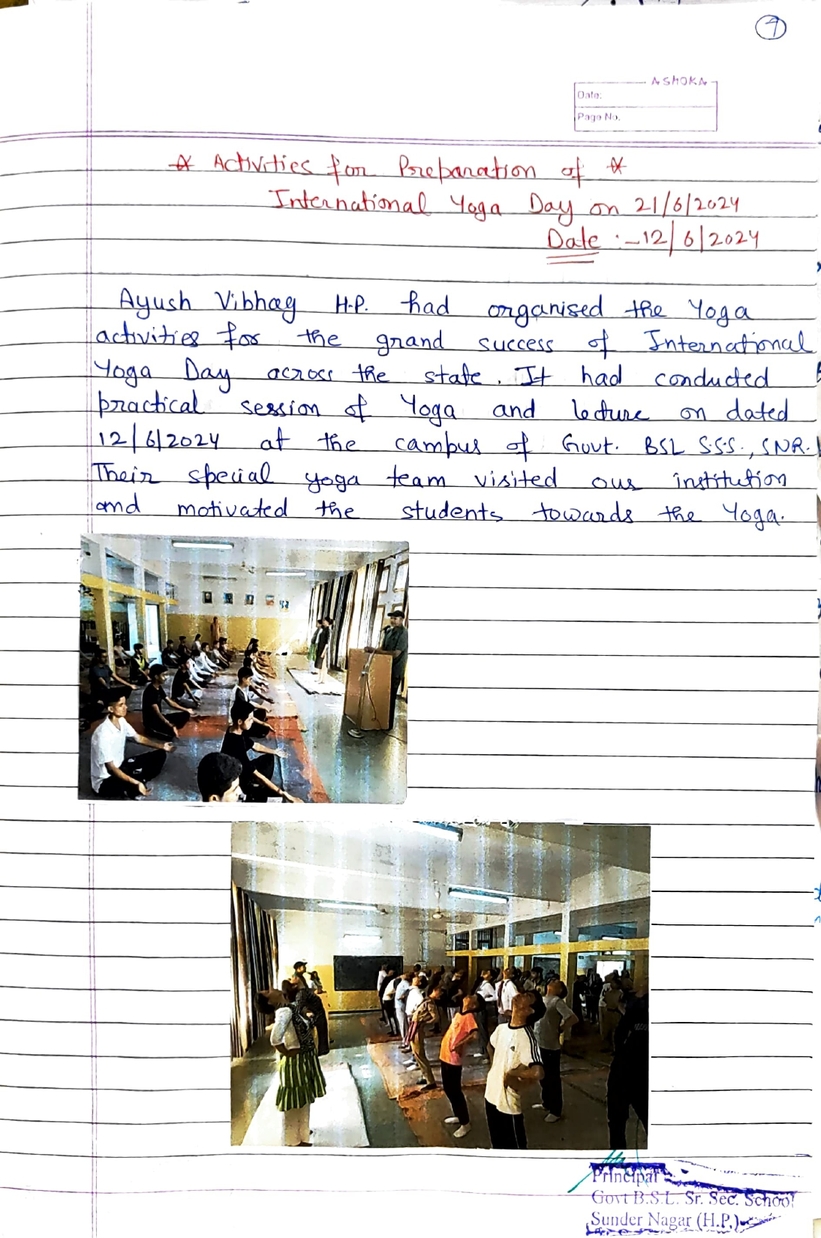 9
ASHOKA
Date:
Page No.
* Activities for Preparation of *
International Yoga Day on 21/6/2024
Date :- 12/6/2024
Ayush Vibhag H.P. had organised the Yoga
activities for the grand success of International
Yoga Day across the state. It had conducted
practical session of Yoga and lecture on dated
12/6/2024 at the campus of Govt. BSL S.S.S., SNR.
Their special yoga team visited our institution
and motivated the students towards the Yoga.
Principal
Govt B.S.L. Sr. Sec. School
Sunder Nagar (H.P.)